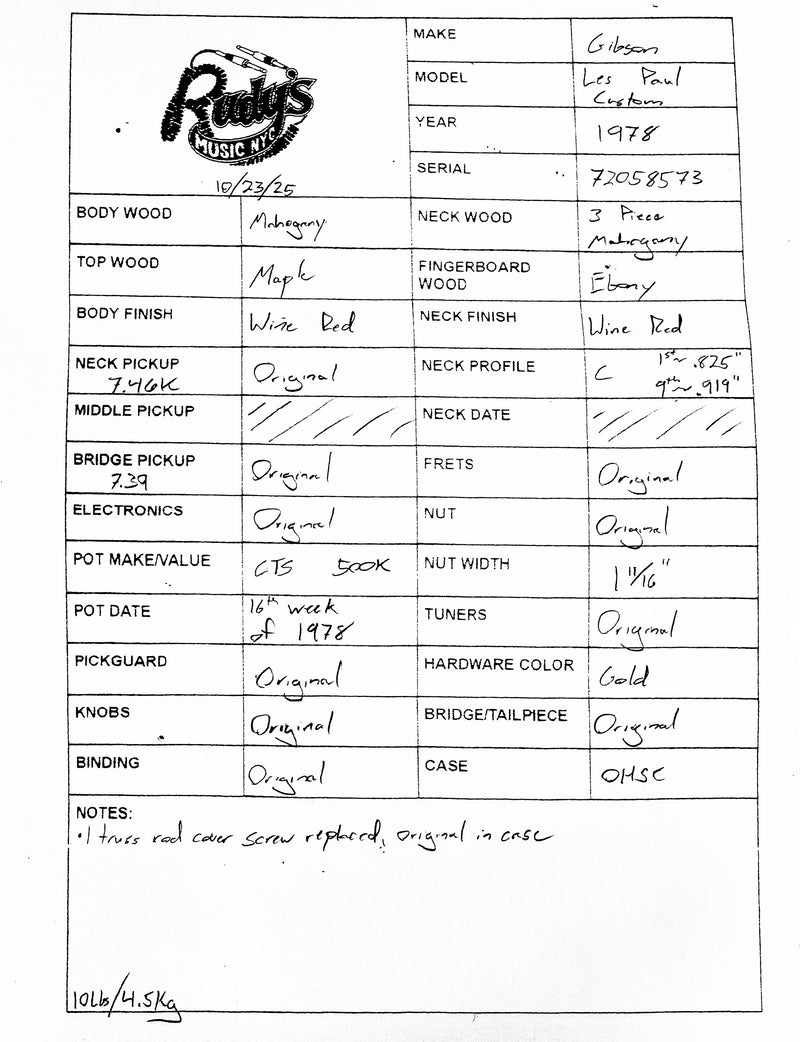 Rudy's
MUSIC NYC
10/23/25
MAKE Gibson
MODEL Les Paul
Custom
YEAR 1978
SERIAL 72058573
BODY WOOD Mahogany
NECK WOOD 3 Piece
Mahogany
TOP WOOD Maple
FINGERBOARD
WOOD Ebony
BODY FINISH Wine Red
NECK FINISH Wine Red
NECK PICKUP
7.46K Original
NECK PROFILE C 1st ~ .825"
9th ~ .919"
MIDDLE PICKUP
NECK DATE
BRIDGE PICKUP
7.39 Original
FRETS Original
ELECTRONICS Original
NUT Original
POT MAKE/VALUE CTS 500K
NUT WIDTH 1 11/16"
POT DATE 16th week
of 1978
TUNERS Original
PICKGUARD Original
HARDWARE COLOR Gold
KNOBS Original
BRIDGE/TAILPIECE Original
BINDING Original
CASE OHSC
NOTES:
• 1 truss rod cover screw replaced, original in case
10Lbs/4.5Kg